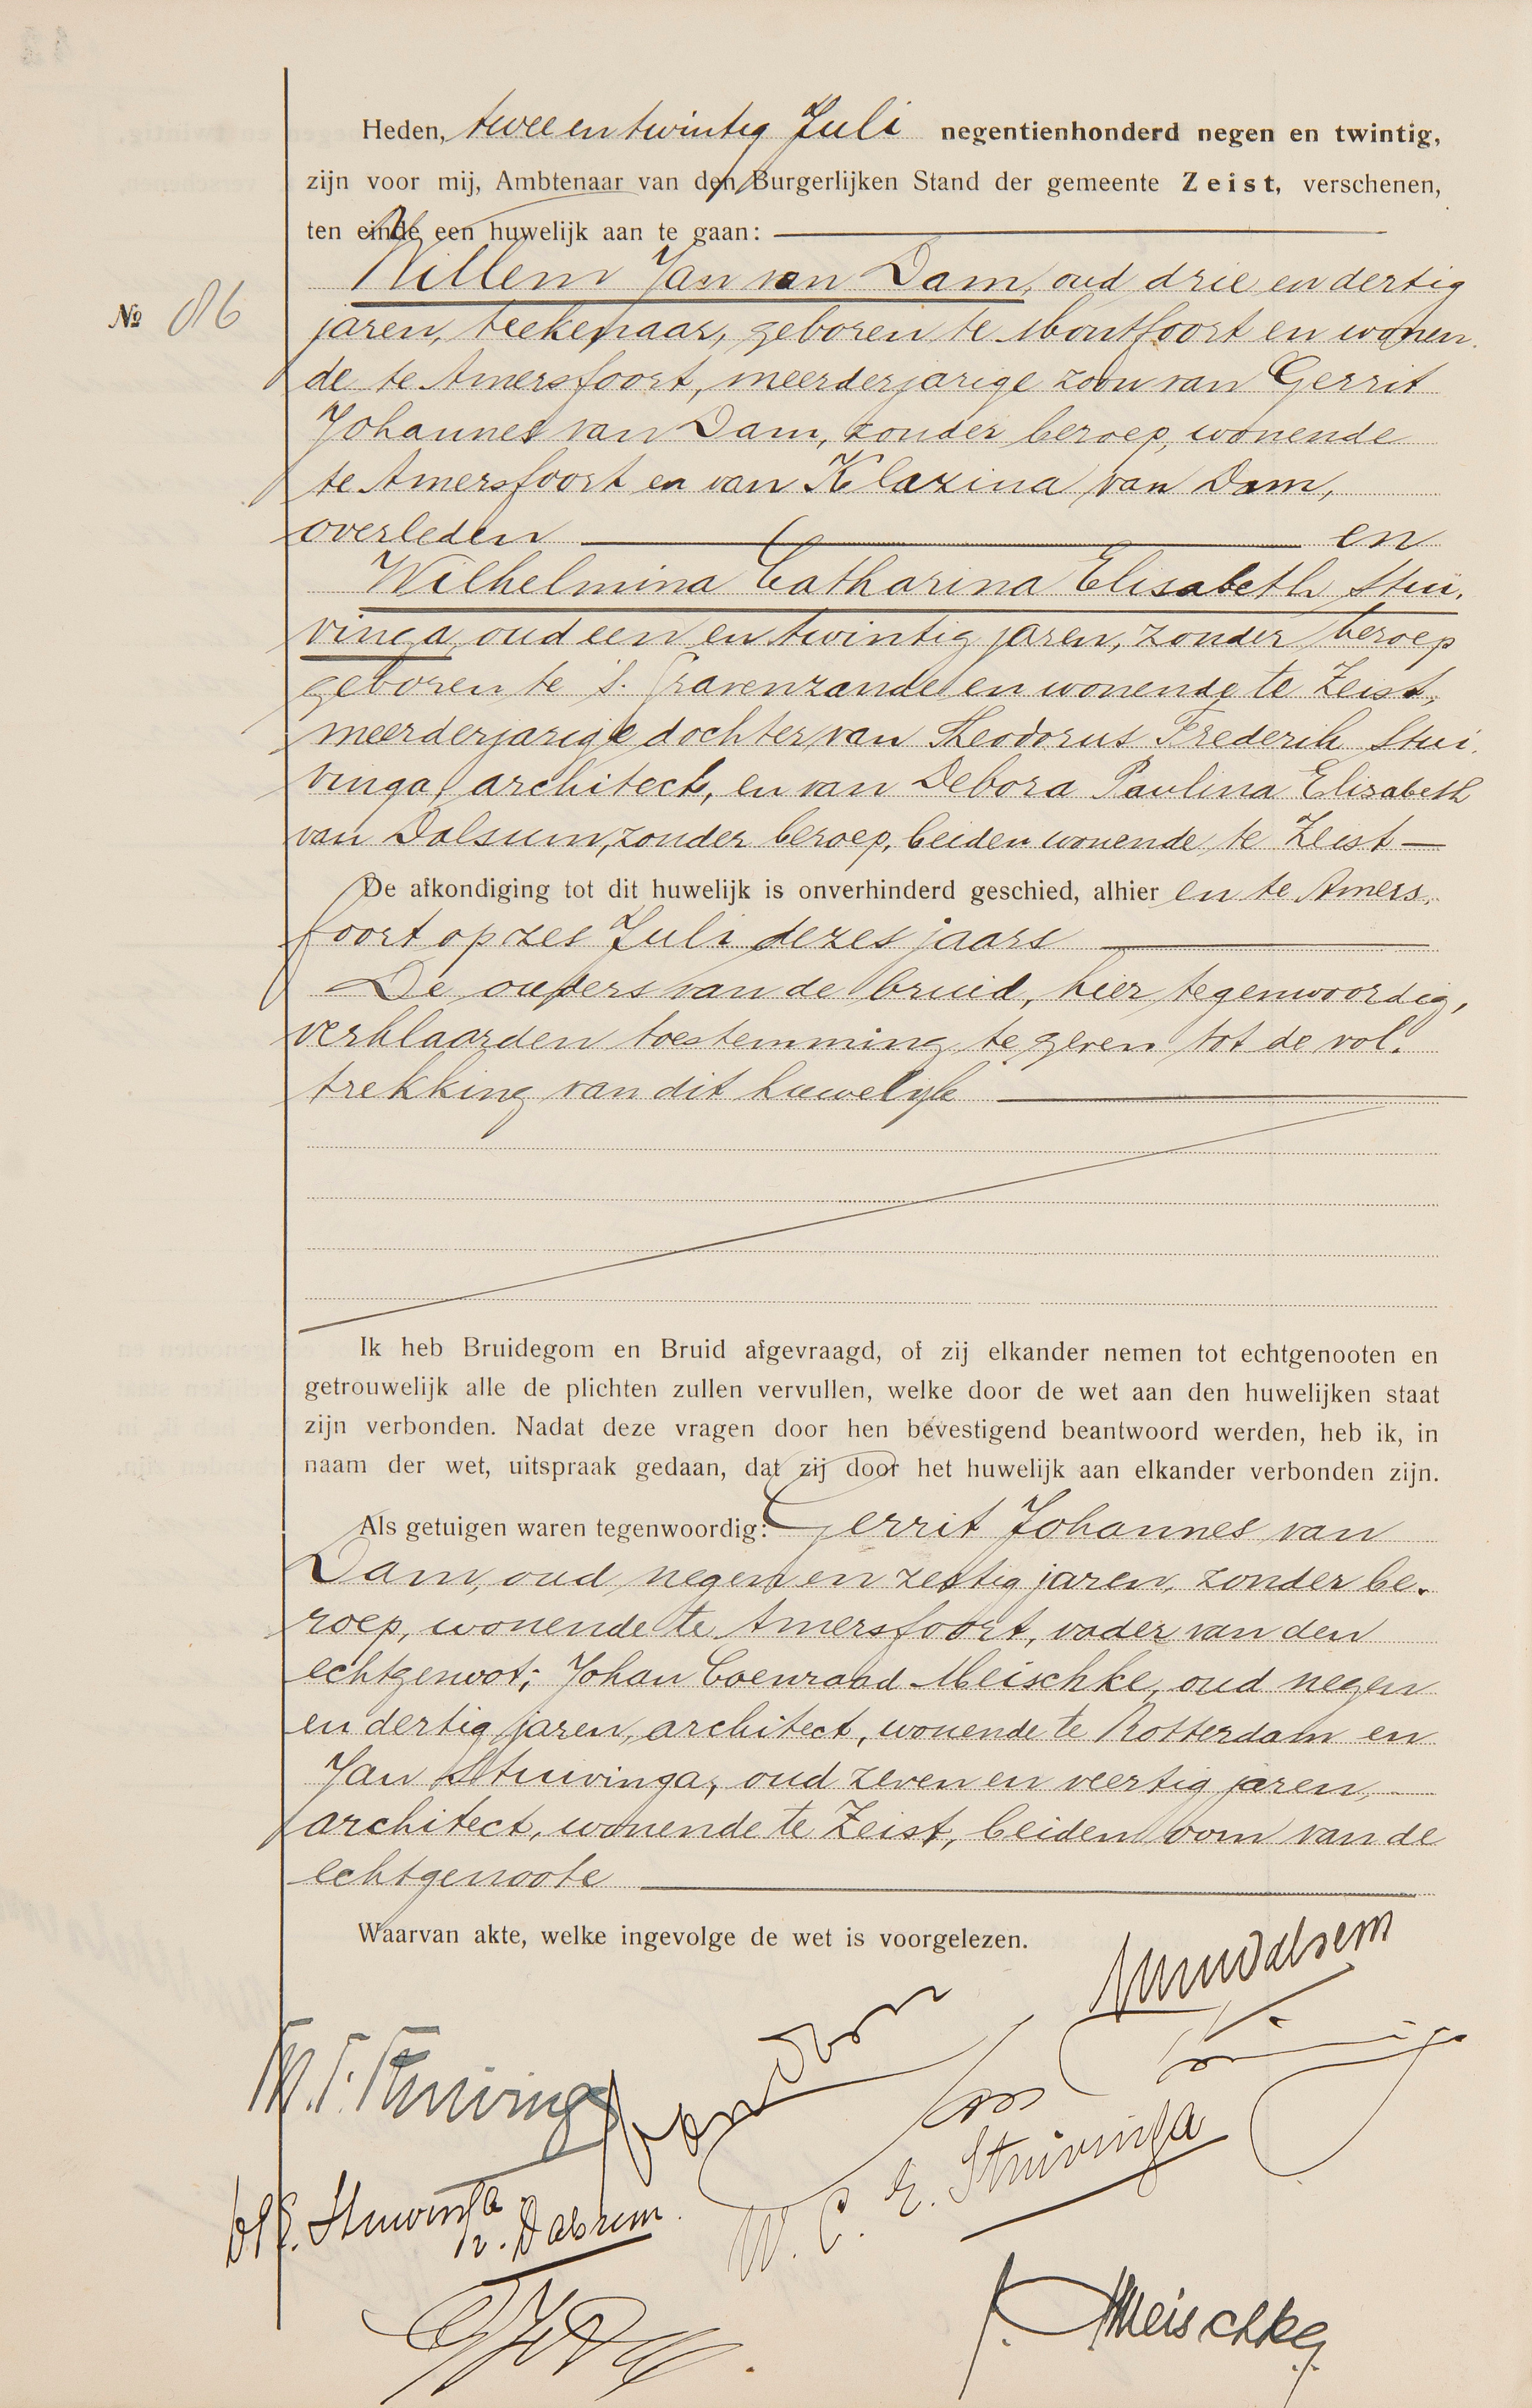 Heden, twee en twintig Juli negentienhonderd negen en twintig,
zijn voor mij, Ambtenaar van den Burgerlijken Stand der gemeente Zeist, verschenen,
ten einde een huwelijk aan te gaan:
Willem Jan van Dam, oud drie en dertig
№ 86
jaren, teekenaar, geboren te Montfoort en wonen-
de te Amersfoort, meerderjarige zoon van Gerrit
Johannes van Dam, zonder beroep, wonende
te Amersfoort en van Klazina van Dam,
overleden en
Wilhelmina Catharina Elisabeth Stui-
vinga, oud een en twintig jaren, zonder beroep
geboren te 's-Gravenzande en wonende te Zeist,
meerderjarige dochter van Theodorus Frederik Stui-
vinga, architect, en van Debora Paulina Elisabeth
van Dalsum, zonder beroep, beiden wonende te Zeist
De afkondiging tot dit huwelijk is onverhinderd geschied, alhier en te Amers-
foort op zes Juli dezes jaars
De ouders van de bruid, hier tegenwoordig,
verklaarden toestemming te geven tot de vol-
trekking van dit huwelijk
Ik heb Bruidegom en Bruid afgevraagd, of zij elkander nemen tot echtgenooten en
getrouwelijk alle de plichten zullen vervullen, welke door de wet aan den huwelijken staat
zijn verbonden. Nadat deze vragen door hen bevestigend beantwoord werden, heb ik, in
naam der wet, uitspraak gedaan, dat zij door het huwelijk aan elkander verbonden zijn.
Als getuigen waren tegenwoordig: Gerrit Johannes van
Dam, oud negen en zestig jaren, zonder be-
roep, wonende te Amersfoort, vader van den
echtgenoot; Johan Coenraad Meischke, oud negen
en dertig jaren, architect, wonende te Rotterdam en
Jan Stuivinga, oud zeven en veertig jaren,
architect, wonende te Zeist, beiden oom van de
echtgenoote
Waarvan akte, welke ingevolge de wet is voorgelezen.
Th. F. Stuivinga
van Dam
W. C. E. Stuivinga
Stuivinga
v. Dalsum
Meischke